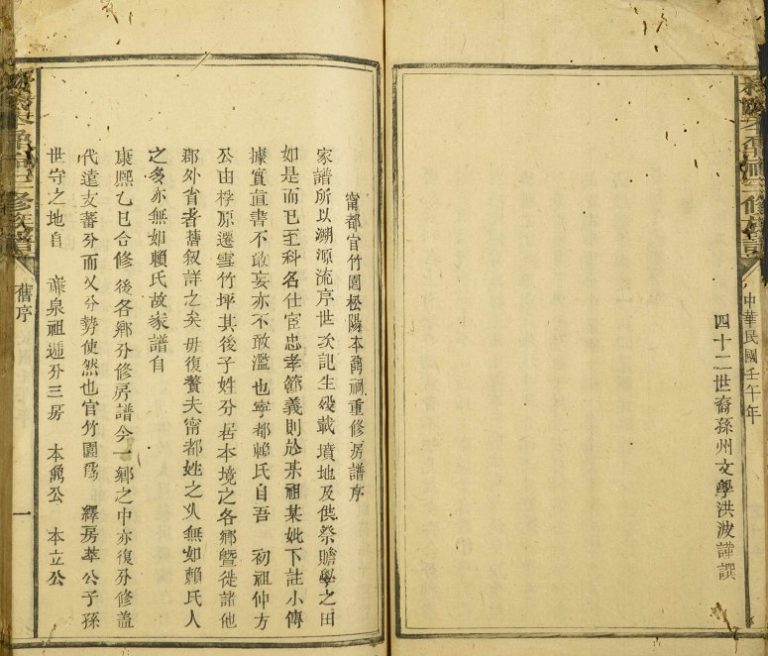 中華民國壬午年
四十二世裔孫州文學洪波謹譔
甯都官竹園松陽本萬祠重修房譜序
家譜所以溯源流序世次記生歿載墳地及供祭贍學之田
如是而已至科名仕宦忠孝節義則於某祖某妣下註小傳
據實直書不敢妄亦不敢濫也寧都賴氏自吾 初祖仲方
公由桴原遷雪竹坪其後子姓分居本境之各鄉暨徙諸他
郡外省者舊叙詳之矣毋復贅夫甯都姓之久無如賴氏人
之多亦無如賴氏故家譜自
康熙乙巳合修 後各鄉分修房譜今一鄉之中亦復分修蓋
代遠支蕃分而又分勢使然也官竹園爲 繹房莘公子孫
世守之地自 廉泉祖遞分三房 本萬公 本立公
三修族譜
舊序
一